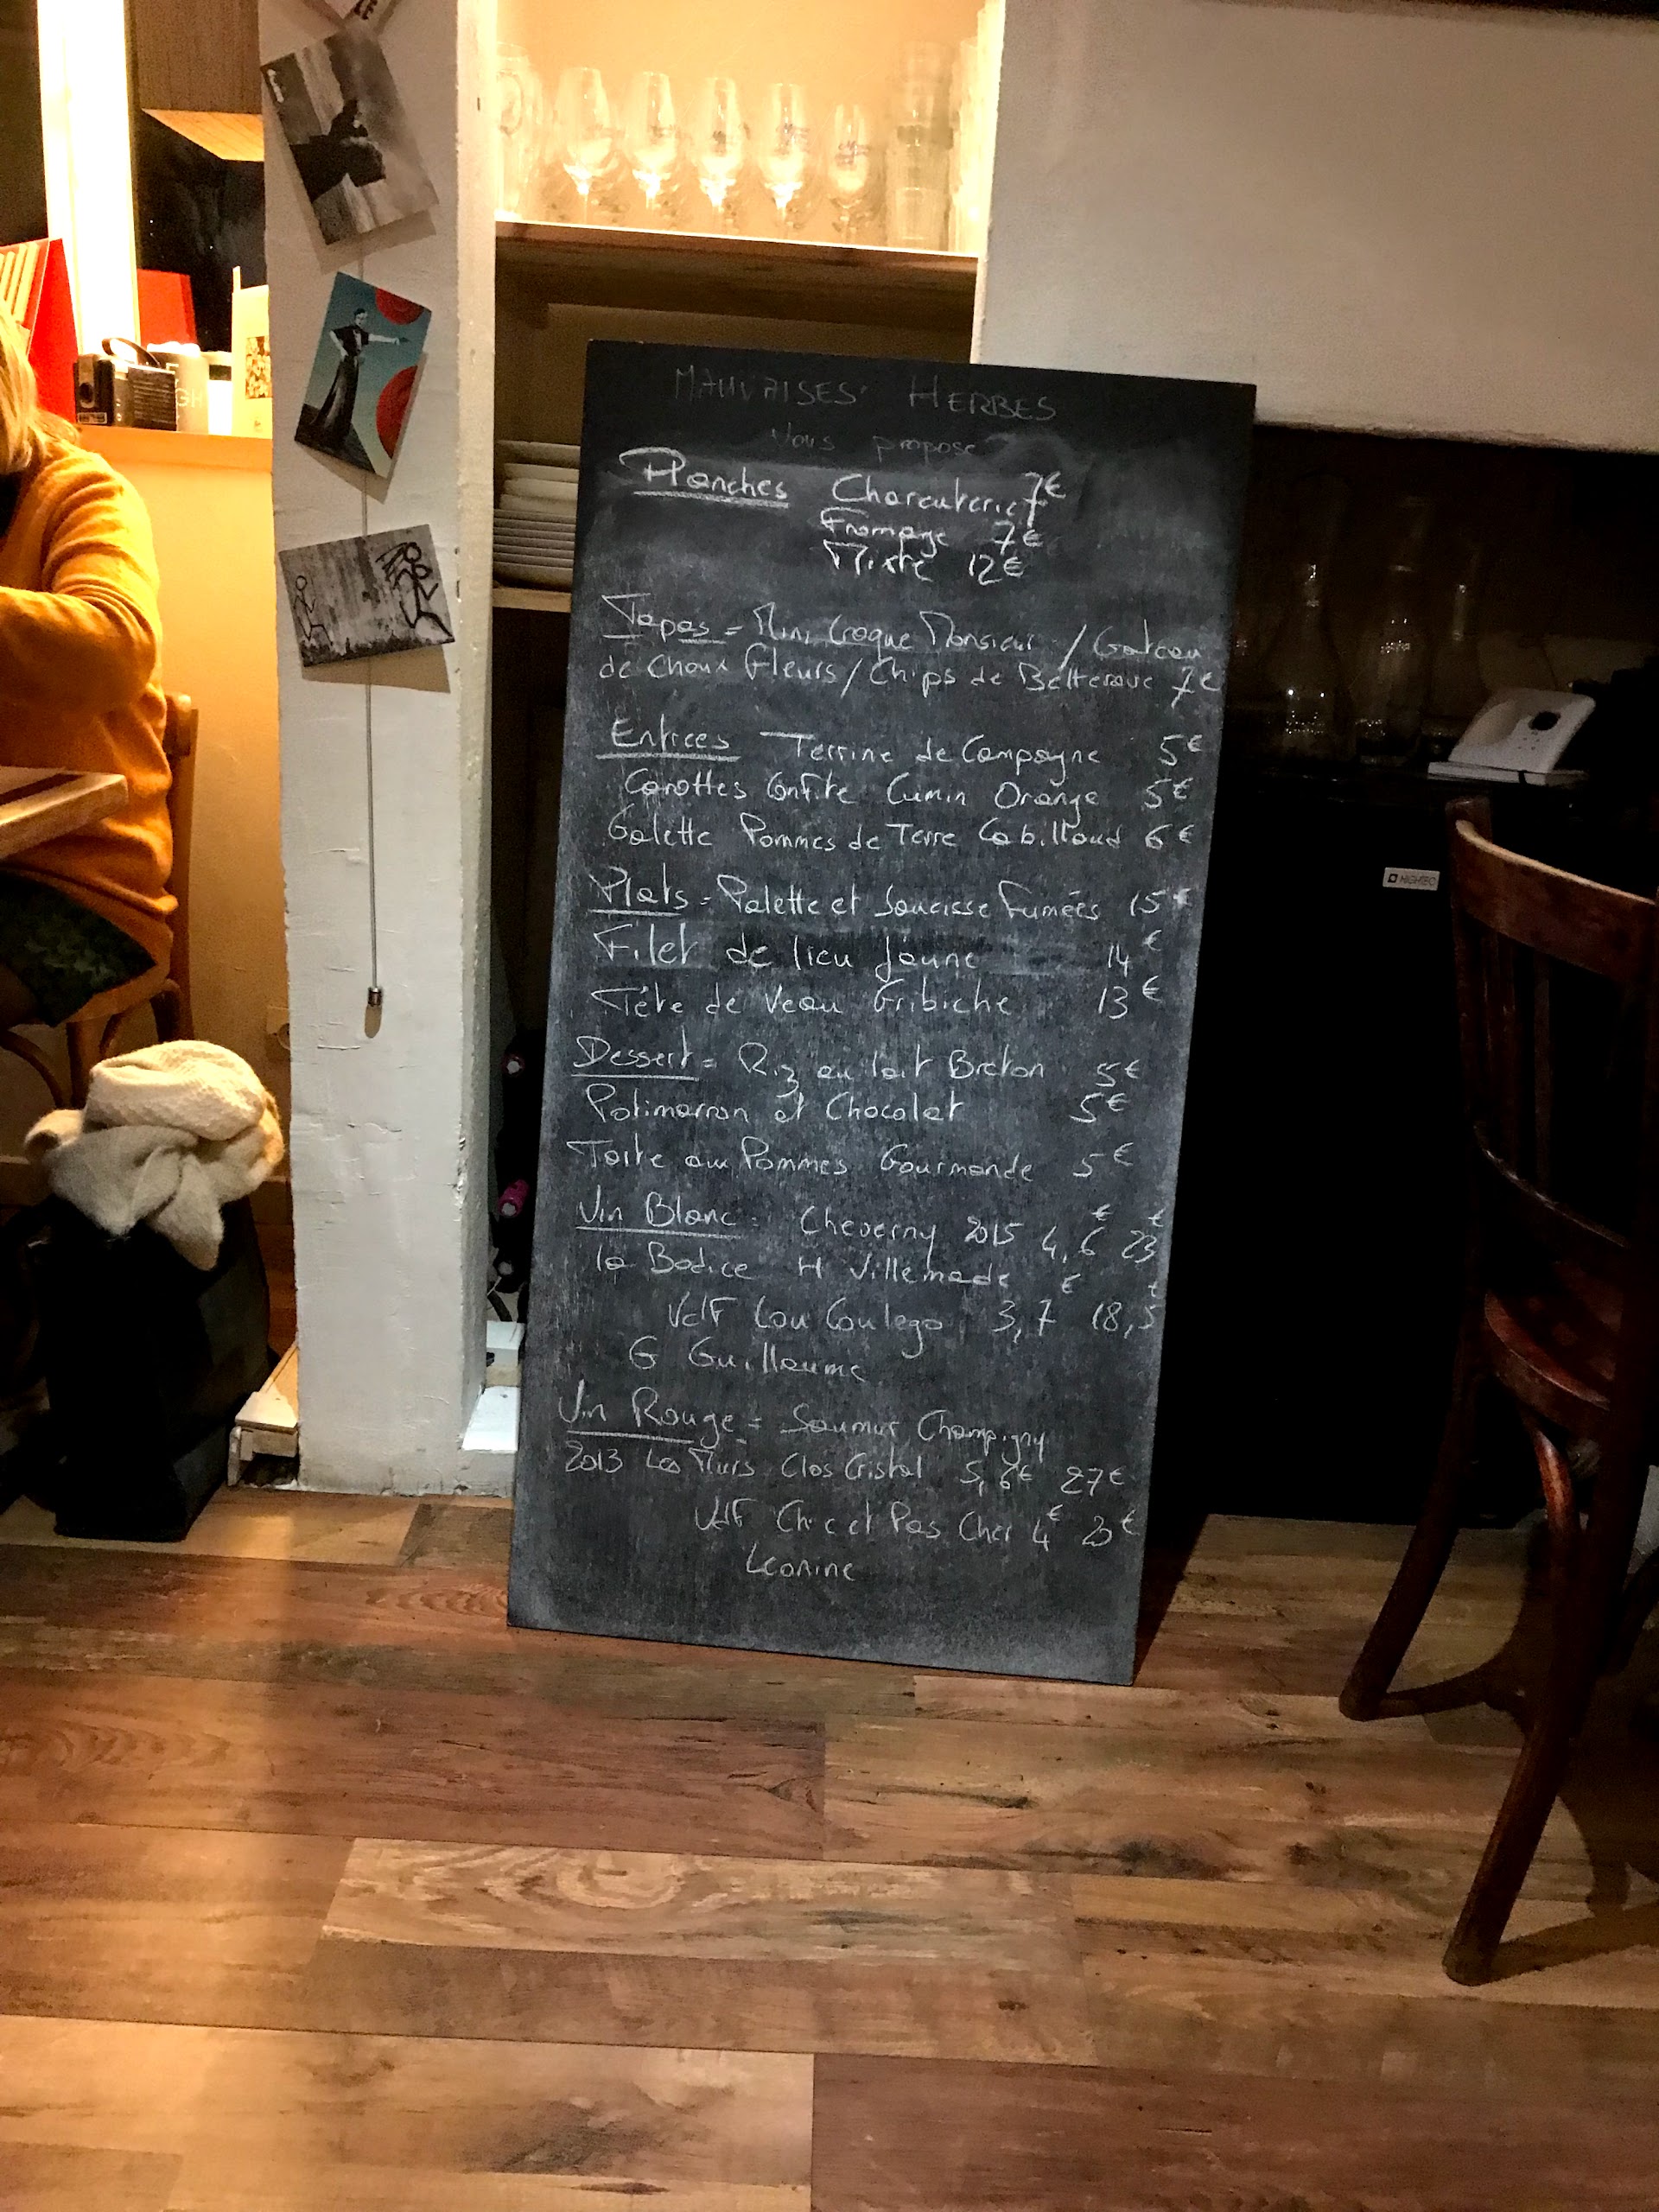 MAUVAISES HERBES
Vous propose
Planches Charcuterie 7€
Fromage 7€
Mixte 12€
Tapas = Mini Croque Monsieur / Gateau
de Choux Fleurs / Chips de Betterave 7€
Entrées Terrine de Campagne 5€
Carottes Confite Cumin Orange 5€
Galette Pommes de Terre Cabillaud 6€
Plats = Palette et Saucisse Fumées 15€
Filet de lieu Jaune 14€
Tête de Veau Gribiche 13€
Dessert = Riz au lait Breton 5€
Potimarron et Chocolat 5€
Tarte aux Pommes Gourmande 5€
Vin Blanc = Cheverny 2015 4,6€ 23€
la Bodice H Villemade
VdF Lou Coulego 3,7€ 18,5€
G Guillaume
Vin Rouge = Saumur Champigny
2013 Les Murs Clos Cristal 5,6€ 27€
VdF Chic et Pas Cher 4€ 20€
Leonine
HIGHTEC